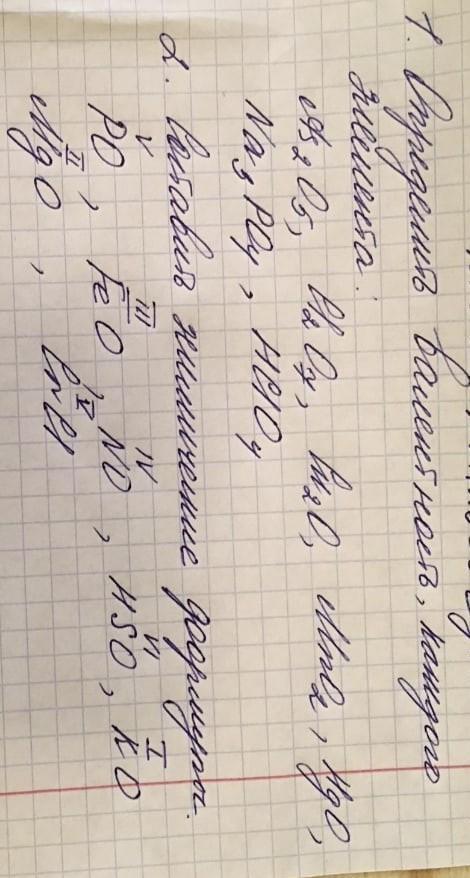 1. Определить валентность, каждого
элемента:
As₂O₅, Cl₂O₇, Cu₂O, MnO₂, HgO,
Na₃PO₄, HClO₄
2. Составить химические формулы.
V III IV VI I
PO, FeO, NO, HSO, KO
II V
MgO, CrCl